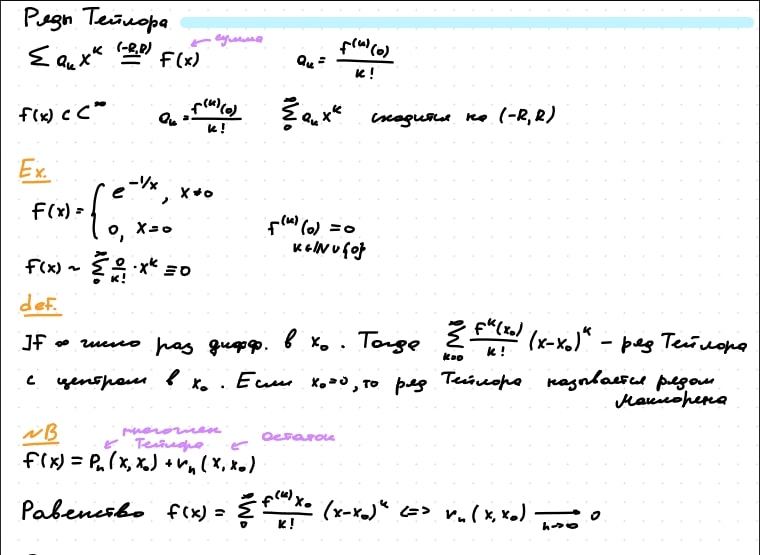 Ряды Тейлора
сумма
∑ aₖ xᵏ (-R,R)= f(x)   aₖ = f⁽ᵏ⁾(0) / k!
f(x) ⊂ C^∞   aₖ = f⁽ᵏ⁾(0) / k!   ∑₀^∞ aₖ xᵏ сходится на (-R, R)
Ex.
f(x) = { e^(-1/x), x≠0
0, x=0   f⁽ᵏ⁾(0) = 0
k∈ℕ∪{0}
f(x) ~ ∑₀^∞ 0/k! · xᵏ ≡ 0
def.
]f ∞ число раз дифф. в x₀. Тогда ∑ₖ₌₀^∞ fᵏ(x₀)/k! (x-x₀)ᵏ – ряд Тейлора
с центром в x₀. Если x₀=0, то ряд Тейлора называется рядом
Маклорена
NB
многочлен Тейлора   остаток
f(x) = Pₙ(x, x₀) + rₙ(x, x₀)
Равенство f(x) = ∑₀^∞ f⁽ᵏ⁾x₀/k! (x-x₀)ᵏ <=> rₙ(x, x₀) →(n→∞) 0